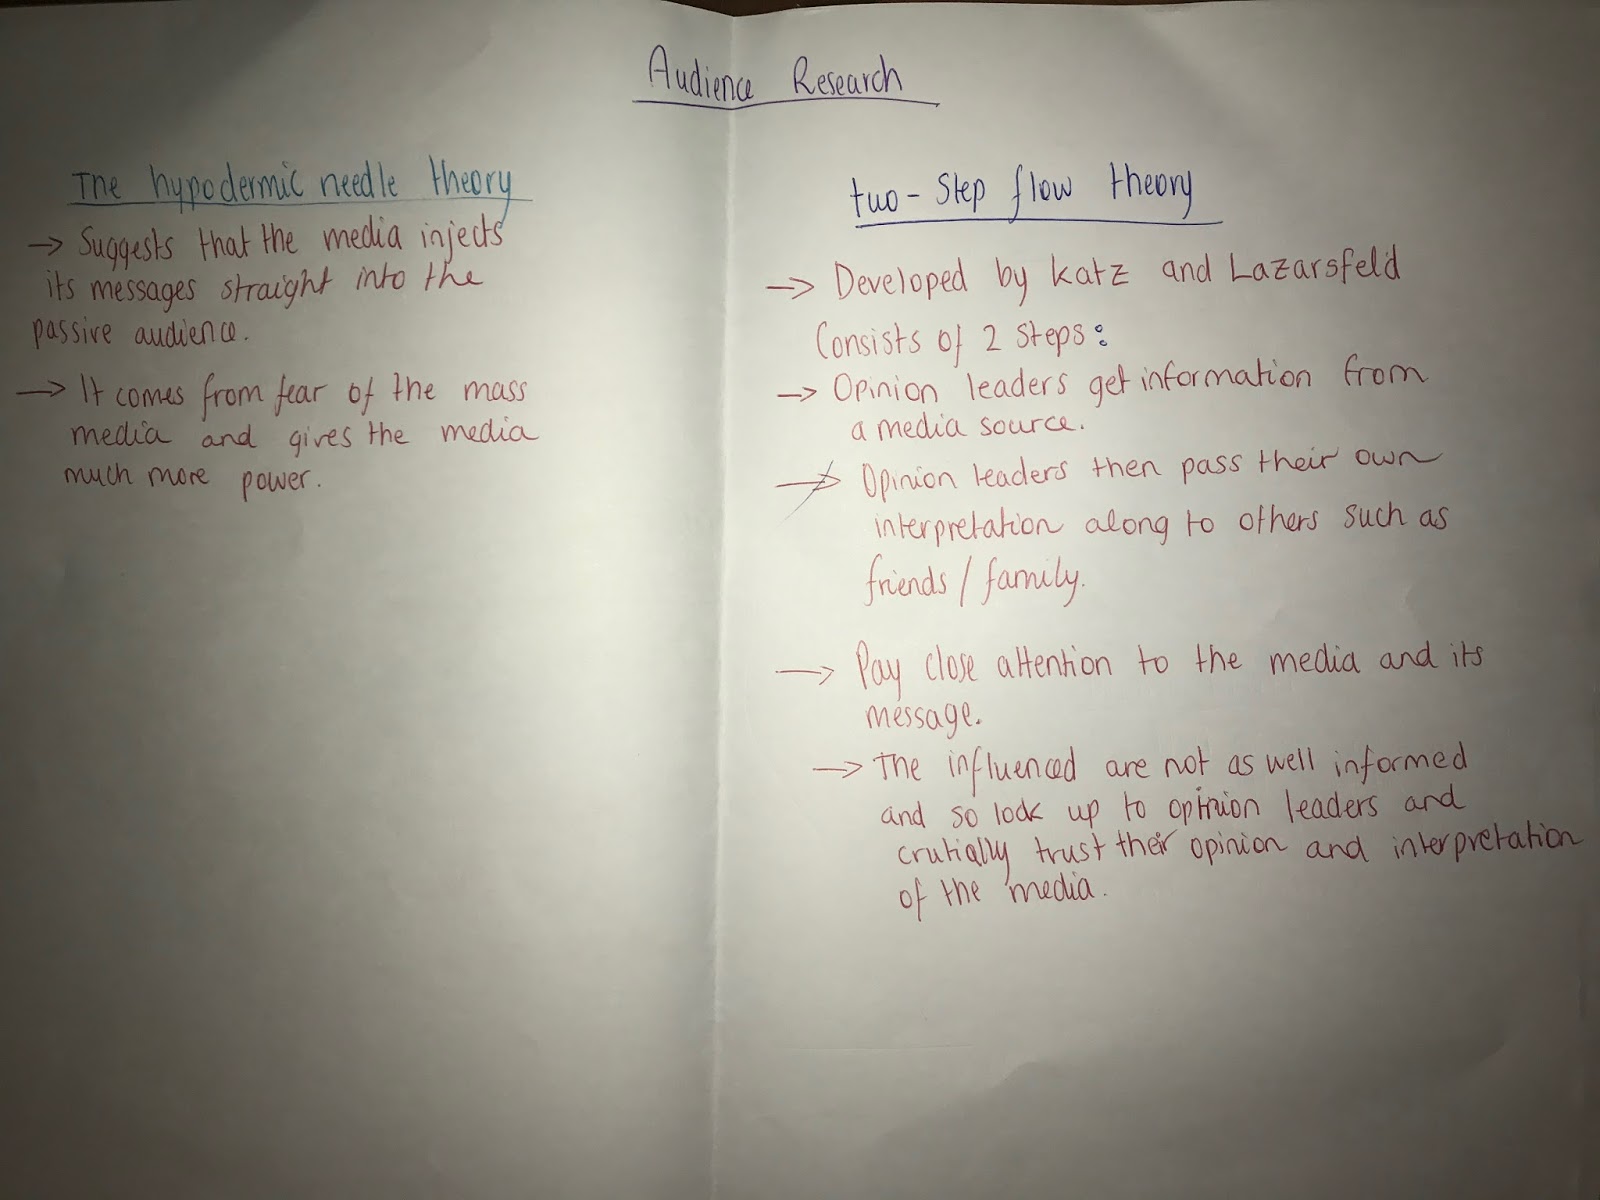 Audience Research
The hypodermic needle theory
→ Suggests that the media injects
its messages straight into the
passive audience.
→ It comes from fear of the mass
media and gives the media
much more power.
two-step flow theory
→ Developed by Katz and Lazarsfeld
Consists of 2 steps:
→ Opinion leaders get information from
a media source.
→ Opinion leaders then pass their own
interpretation along to others such as
friends / family.
→ Pay close attention to the media and its
message.
→ The influenced are not as well informed
and so look up to opinion leaders and
crutially trust their opinion and interpretation
of the media.